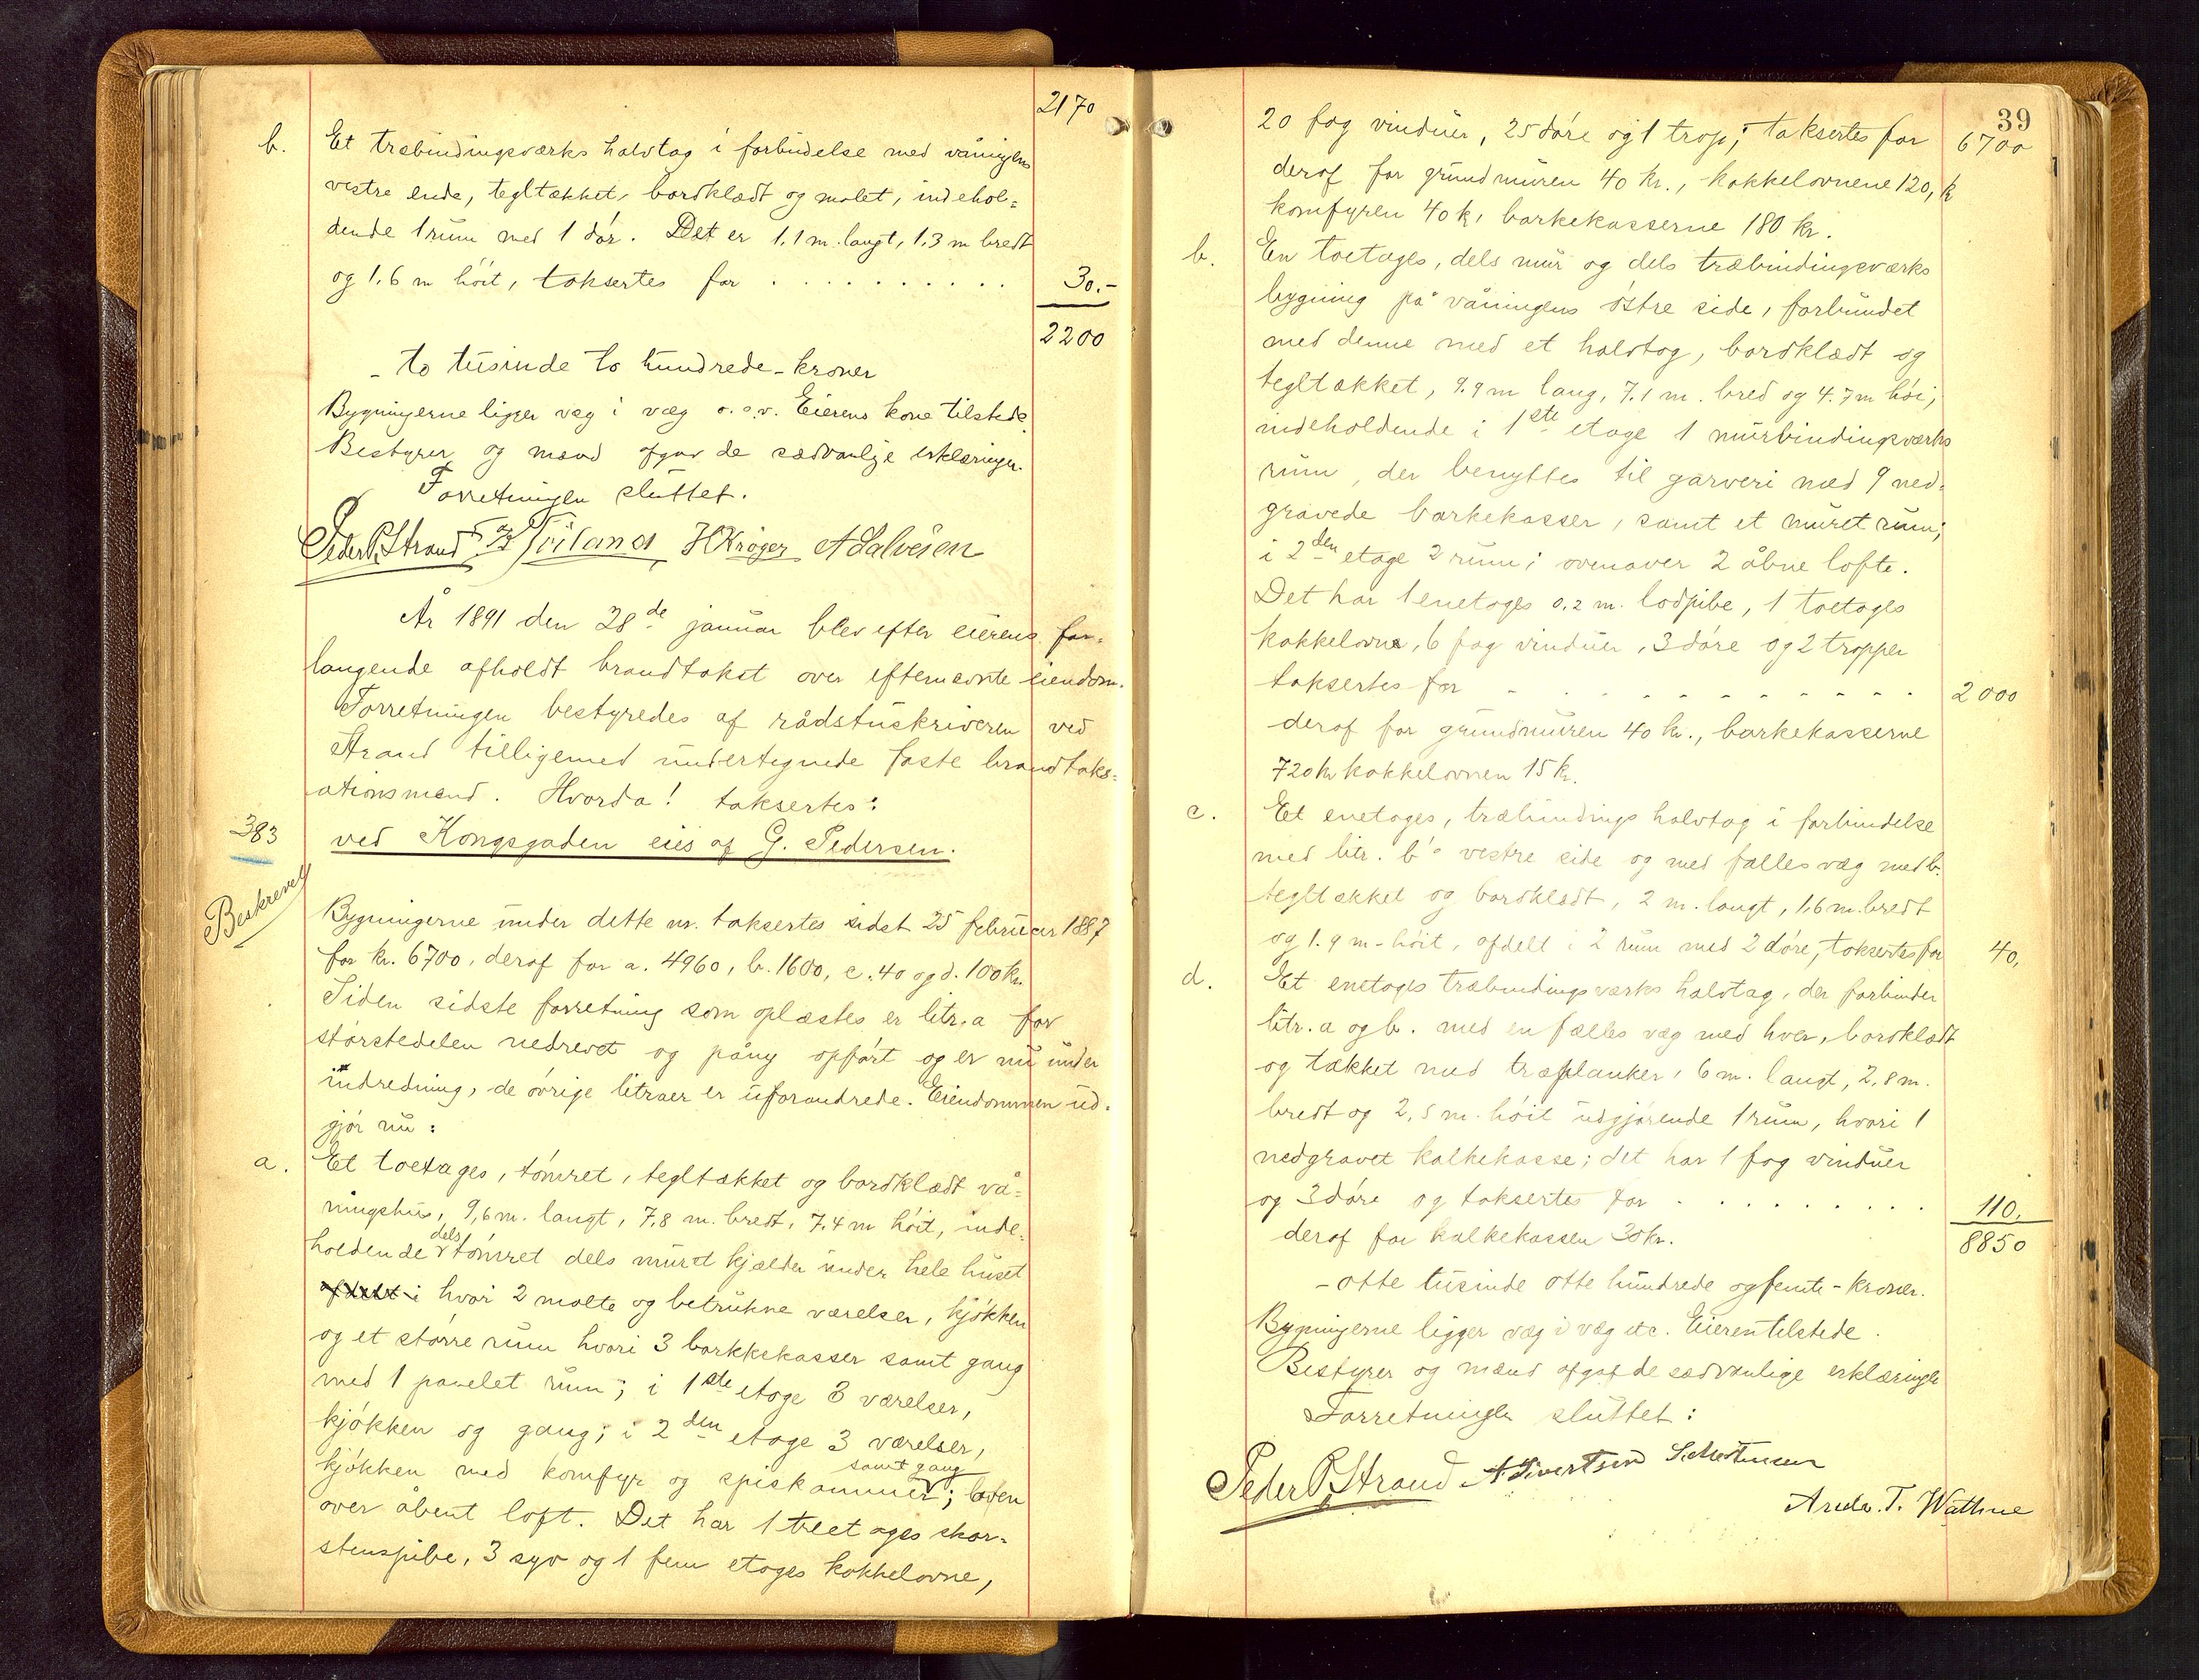 2170
b. Et træbindingsværks halvtag i forbindelse med våningens
vestre ende, tegltækket, bordklædt og malet, indehol-
dende 1 rum med 1 dør. Det er 1,1 m. langt, 1.3 m bredt
og 1.6 m høit, taksertes for . . . . . . . . . 30.-
2200
- to tusinde to hundrede - kroner
Bygningerne ligger væg i væg o.s.v. Eierens kone tilstede.
Bestyrer og mænd afgav de sædvanlige erklæringer.
Forretningen sluttet.
Peder P. Strand H Krøger A Salvesen
År 1891 den 28de januar blev efter eierens for-
langende afholdt brandtakst over efternævnte eiendom.
Forretningen bestyredes af rådstuskriveren ved
Strand tilligemed undertegnede faste brandtaks-
ationsmænd. Hvorda! taksertes:
383 ved Kongsgaden eies af G. Pedersen.
Beskrevet
Bygningerne under dette nr. taksertes sidst 25 februar 1887
for kr. 6700, deraf for a. 4960, b. 1600, c. 40 og d. 100 kr.
Siden sidste forretning som oplæstes er litr. a for
størstedelen nedrevet og påny opført og er nu under
indredning, de øvrige litraer er uforandrede. Eiendommen ud-
gjør nu:
a. Et toetages, tømret, tegltækket og bordklædt vå-
ningshus, 9,6 m. langt, 7,8 m. bredt, 7.4 m høit, inde-
holdende dels tømret dels muret kjælder under hele huset
afdelt i hvori 2 malte og betrukne værelser, kjøkken
og et større rum hvori 3 barkkekasser samt gang
med 1 panelet rum; i 1ste etage 3 værelser,
kjøkken og gang; i 2den etage 3 værelser,
kjøkken med komfyr og spiskammer samt gang; oven
over åbent loft. Det har 1 treetages skor-
stenspibe, 3 syv og 1 fem etages kakkelovne,
39
20 fag vinduer, 25 døre og 1 trop; taksertes for 6700
deraf for grundmuren 40 kr., kakkelovnene 120, k
komfyren 40 k, barkekasserne 180 kr.
b. En toetages, dels mur og dels træbindingsværks
bygning på våningens østre side, forbundet
med denne med et halvtag, bordklædt og
tegltækket, 9.9 m lang, 7.1 m. bred og 4.7 m høi,
indeholdende i 1ste etage 1 murbindingsværks
rum, der benyttes til garveri med 9 ned-
gravede barkekasser, samt et muret rum;
i 2den etage 2 rum; ovenover 2 åbne lofte.
Det har 1 enetages 0.2 m. lodpibe, 1 toetages
kakkelovne, 6 fag vinduer, 3 døre og 2 tropper
taksertes for - - - - - - - - - - 2000
deraf for grundmuren 40 kr., barkekasserne
720 kr kakkelovnen 15 kr.
c. Et enetages, træbindings halvtag i forbindelse
med litr. b's vestre side og med fælles væg med b.
tegltækket og bordklædt, 2 m. langt, 1,6 m. bredt
og 1.9 m - høit, afdelt i 2 rum med 2 døre, taksertes for 40,
d. Et enetages træbindingsværks halvtag, der forbinder
litr. a og b. med en fælles væg med hver, bordklædt
og tækket med træplanker, 6 m. langt, 2,8 m.
bredt og 2,5 m. høit udgjørende 1 rum, hvori 1
nedgravet kalkekasse; det har 1 fag vinduer
og 3 døre og taksertes for . . . . . . . . 110.
deraf for kalkekassen 30 kr. 8850
- otte tusinde otte hundrede og femti - kroner.
Bygningerne ligger væg i væg etc. Eieren tilstede.
Bestyrer og mænd afgaf de sædvanlige erklæringer
Forretningen sluttet:
Peder P. Strand A Sivertsen S. Mortensen
Anda. T. Wathne